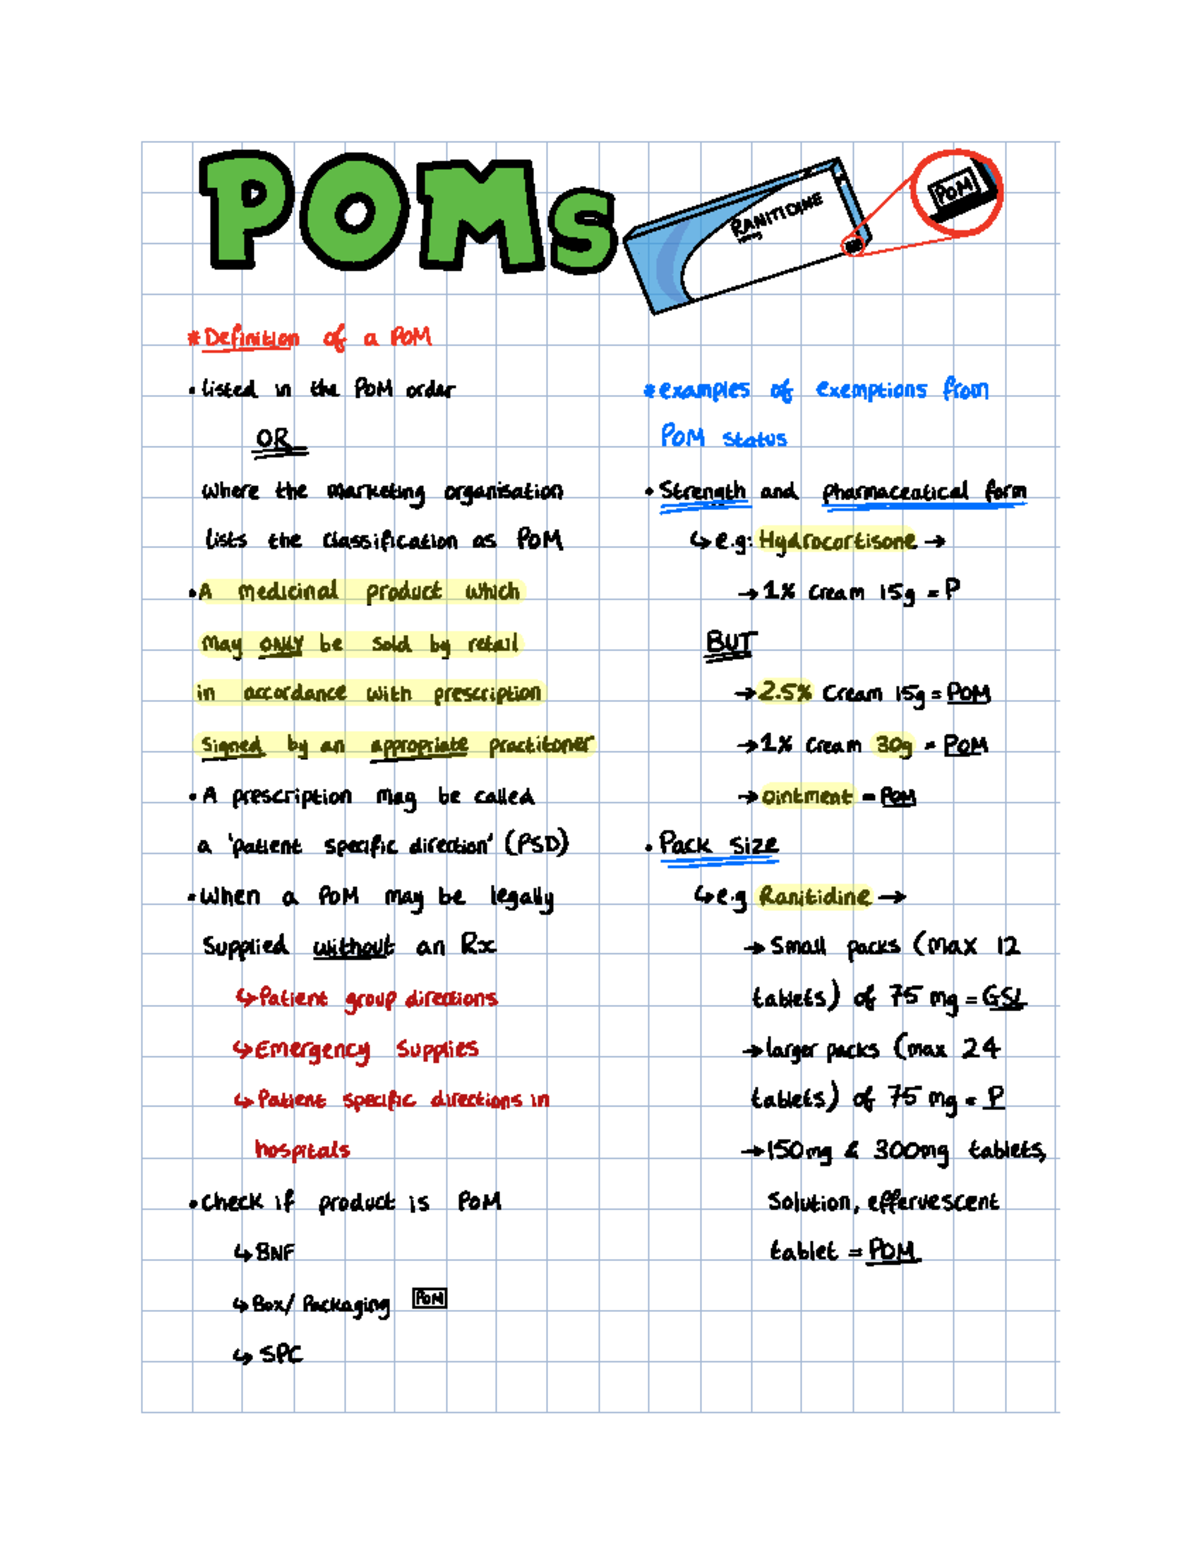 POMs
RANITIDINE
POM
* Definition of a POM
• listed in the POM order
OR
where the marketing organisation
lists the classification as POM
• A medicinal product which
may ONLY be sold by retail
in accordance with prescription
signed by an appropriate practitoner
• A prescription may be called
a 'patient specific direction' (PSD)
• When a POM may be legally
supplied without an Rx
↳ Patient group directions
↳ Emergency supplies
↳ Patient specific directions in
hospitals
• Check if product is POM
↳ BNF
↳ Box/ Packaging POM
↳ SPC
* examples of exemptions from
POM status
• Strength and pharmaceutical form
↳ e.g: Hydrocortisone →
→ 1% cream 15g = P
BUT
→ 2.5% cream 15g = POM
→ 1% cream 30g = POM
→ ointment = POM
• Pack size
↳ e.g Ranitidine →
→ Small packs (max 12
tablets) of 75 mg = GSL
→ larger packs (max 24
tablets) of 75 mg = P
→ 150mg & 300mg tablets,
solution, effervescent
tablet = POM